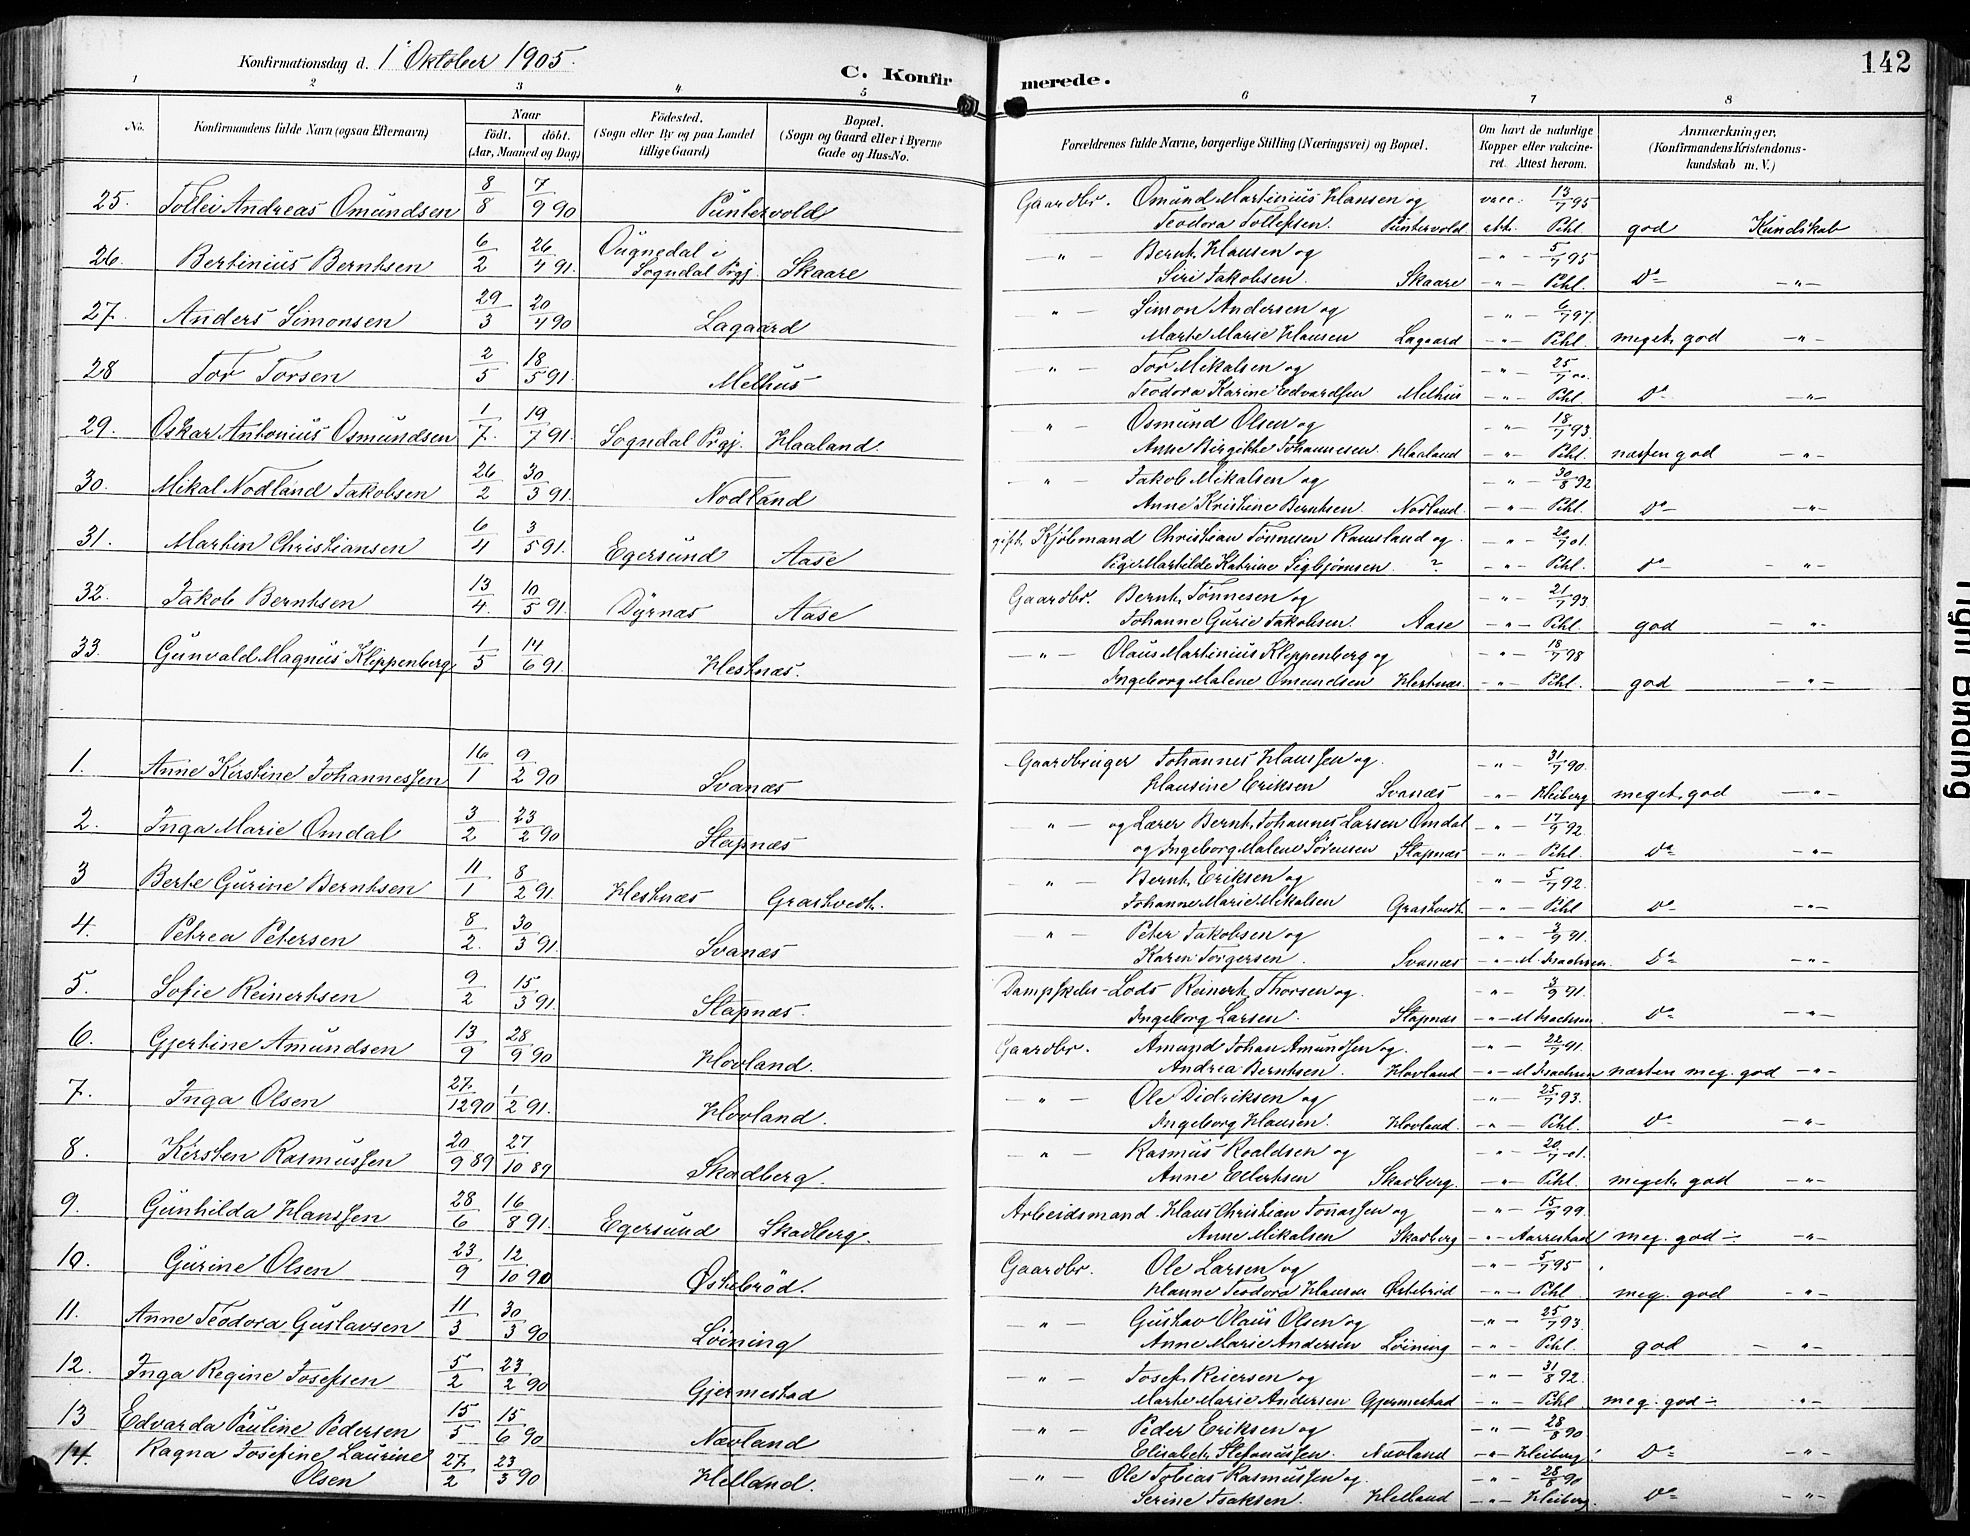 Konfirmationsdag d. 1 Oktober 1905.
C. Konfirmerede.
142
1 2 3 4 5 6 7 8
No.
Konfirmandens fulde Navn (ogsaa Efternavn)
Naar
födt. döbt.
(Aar, Maaned og Dag)
Födested.
(Sogn eller By og paa Landet tillige Gaard)
Bopæl.
(Sogn og Gaard eller i Byerne Gade og Hus-No.
Forældrenes fulde Navne, borgerlige Stilling (Næringsvei) og Bopæl.
Om havt de naturlige Kopper eller vakcineret. Attest herom.
Anmærkninger,
(Konfirmandens Kristendomskundskab m. V.)
25. Tollei Andreas Omundsen 8/8 7/9 90 Puntervold Gaardbr. Omund Martinius Hansen og vacc. 13/7 95
Teodora Tollefsen. Puntervold att. Pihl god Kundskab
26. Bertinius Berntsen 6/2 26/4 91. Sogndal Prgj. Skaare -"- Bernt Hansen og -"- 5/7 95
Siri Jakobsen. Skaare -"- Pihl. Do -"-
27. Anders Simonsen 29/3 20/4 90 Lagaard -"- Simon Andersen og -"- 6/7 97.
Marte Marie Hansen Lagaard -"- Pihl. meget god -"-
28 Tor Torsen 2/5 18/5 91. Melhus -"- Tor Mikalsen og -"- 25/7
Teodora Karine Edvardsen Melhus -"- Pihl Do -"-
29. Oskar Antonius Osmundsen 1/7. 19/7 91. Sogndal Prgj. Haaland. -"- Osmund Olsen og -"- 18/7 93.
Anne Birgitte Johannesen. Haaland -"- Pihl. næsten god -"-
30. Mikal Nodland Jakobsen 26/2 30/3 91. Nodland -"- Jakob Mikalsen og -"- 30/8 92
Anne Kristine Berntsen. Nodland. -"- Pihl. Do -"-
31. Martin Christiansen 6/4 3/5 91. Egersund Aase gift. Kjøbmand Christian Tønnesen Ramsland og -"- 20/7 01.
Pige Martilde Katrine Sigbjørnsen. ? -"- Pihl. Do -"-
32. Jakob Berntsen 13/4. 10/5 91. Dyrnæs Aase Gaardbr. Bernt Tønnesen og -"- 21/7 93
Johanne Gurie Jakobsen. Aase -"- Pihl. god -"-
33. Gunvald Magnus Kleppenberg 1/5 14/6 91. Hestnæs. -"- Olaus Martinius Kleppenberg og -"- 18/7 98
Ingeborg Malene Omundsen Hestnæs. -"- Pihl. god -"-
1. Anne Kirstine Johannessen 16/1 9/2 90 Svanæs Gaardbruger Johannes Hanssen og -"- 31/7 90.
Hansine Eriksen Svanæs -"- Heiberg meget god -"-
2. Inga Marie Omdal 3/2 23/2 90 Stapnæs -"- og Lærer Bernt Johannes Larsen Omdal -"- 17/9 92.
og Ingeborg Malene Sørensen Stapnæs -"- Pihl. Do -"-
3 Berte Gurine Berntsen 11/1 8/2 91. Hestnæs Grastvedt. -"- Bernt Eriksen og -"- 5/7 92.
Johanne Marie Mikalsen Grastvedt. -"- Pihl Do -"-
4. Petrea Petersen 8/2. 30/3 91. Svanæs -"- Peter Jakobsen og -"- 3/9 91.
Karen Torgersen. Svanæs -"- M. Isachsen. Do -"-
5. Sofie Reinertsen 9/2 15/3 91. Stapnæs. Dampskibs-Lods Reinert Thorsen og. -"- 3/9 91.
Ingeborg Larsen. Stapnæs -"- M Isachsen. Do -"-
6. Gjertine Amundsen 13/9 28/9 90 Hovland. Gaardbr. Amund Johan Amundsen og. -"- 22/7 91.
Andrea Berntsen. Hovland -"- M Isachsen næsten meg. god -"-
7. Inga Olsen 27/12 90 1/2 91. Hovland. -"- Ole Didriksen og -"- 25/7 93.
Ingeborg Hansen. Hovland. -"- Pihl. Do -"-
8. Kirsten Rasmussen 20/9 89 27/10 89 Skadberg. -"- Rasmus Roaldsen og -"- 20/7 01.
Anne Eilertsen Skadberg. -"- Pihl. meget god -"-
9. Gunhilda Hanssen 28/6 16/8 91. Egersund Skadberg. Arbeidsmand Hans Christian Jonassen og -"- 15/9 99.
Anne Mikalsen Skadberg -"- Aarrestad meg. god ÷ -"-
10. Gurine Olsen 23/9 12/10 90 Østebrød. Gaardbr. Ole Larsen og -"- 5/7 95
Hanne Teodora Hansen Østebrød -"- Pihl. meg. god -"-
11. Anne Teodora Gustavsen 11/3 30/3 90 Løining -"- Gustav Olaus Olsen og -"- 25/7 93.
Anne Marie Andersen Løining -"- Pihl. god -"-
12. Inga Regine Josefsen 5/2 23/2 90 Gjermestad -"- Josef Reiersen og -"- 31/8 92.
Marte Marie Andersen Gjermestad -"- Pihl. meg. god ÷ -"-
13 Edvarda Pauline Pedersen 15/5 15/6 90 Nævland -"- Peder Eriksen og -"- 28/8 90
Elisabet Stefanussen. Nævland -"- Heiberg. Do -"-
14. Ragna Josefine Laurine Olsen 27/2 23/3 90 Helland. -"- Ole Tobias Rasmussen og. -"- 28/8 90
Serine Isaksen. Helland -"- Heiberg. Do -"-
Tight Binding